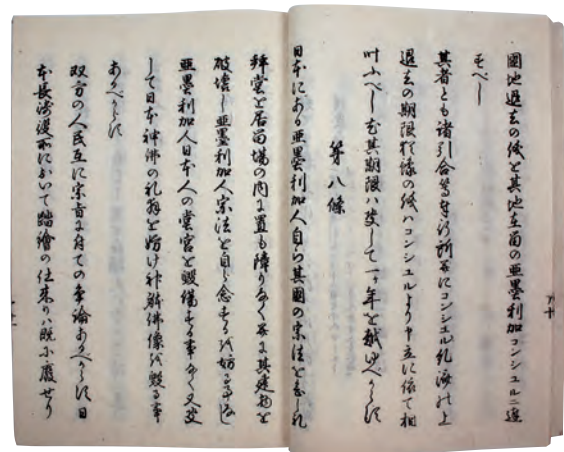 國地退去の儀を其地在留の亜墨利加コンシュルニ達
すべし
其者とも諸引合等奉行所并にコンシュル糺済の上
退去の期限猶豫の儀ハコンシュルより申立に依て相
叶ふべし尤其期限ハ决して一ケ年を越ゆべからす
第八條
日本にある亜墨利加人自ら其國の宗法を念し礼
拝堂を居留場の内に置も障りなく并に其建物を
破壊し亜墨利加人宗法を自ら念するを妨る事なし
亜墨利加人日本人の堂宮を毀傷する事なく又决
して日本神佛の礼拝を妨け神躰佛像を毀る事
あるべからす
双方の人民互に宗旨に付ての争論あるべからす日
本長崎役所において踏繪の仕来りハ既に廢せり